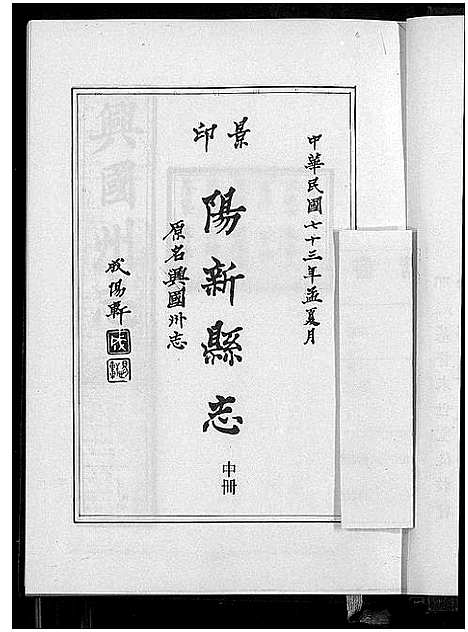 中華民國七十三年孟夏月
景印
陽新縣志
中冊
原名興國州志
成惕軒